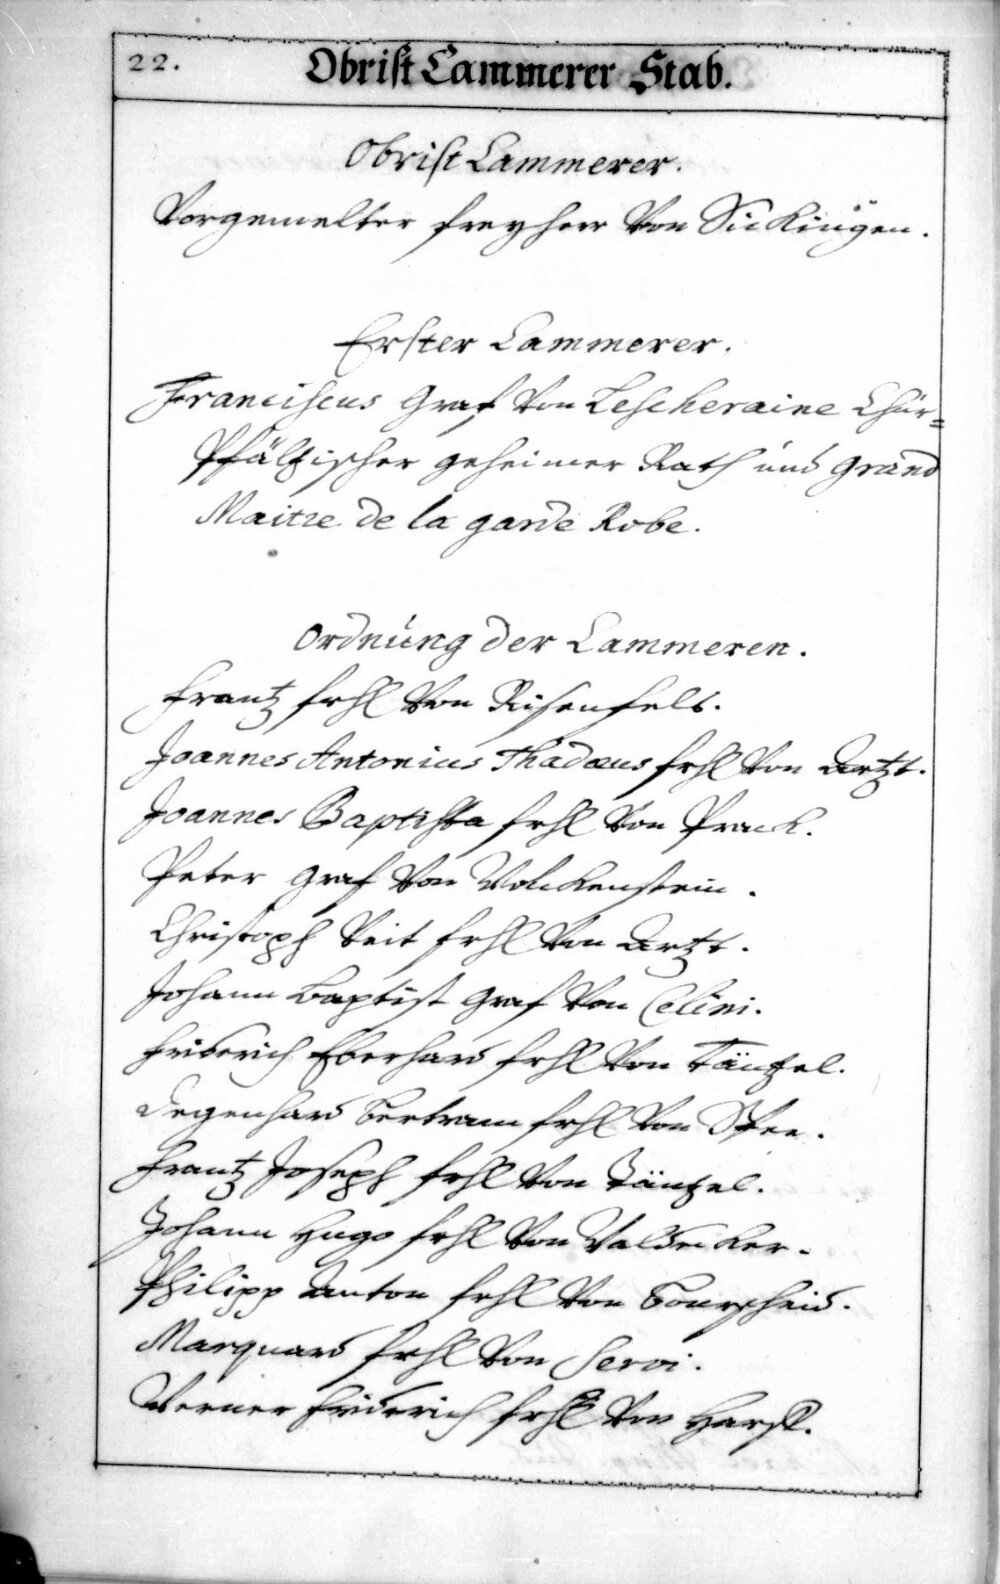 22.
Obrist Cammerer Stab.
Obrist Cammerer.
Vorgemelter freyherr Von Sickingen.
Erster Cammerer.
Franciscus Graf Von Lescheraine Chur=
Pfältzischer geheimer Rath und Grand
Maitre de la garde Robe.
Ordnung der Cammeren.
Frantz frhl Von Risenfels.
Joannes Antonius Thadæus frhl Von Artzt.
Joannes Baptista frhl Von Pranck.
Peter Graf Von Wolckenstein.
Christoph Veit frhl Von Artzt.
Johann Baptist Graf Von Celini.
Friderich Eberhard frhl Von Täntzel.
Degenhard Bertram frhl Von Spee.
Frantz Joseph frhl Von Täntzel.
Johann Hugo frhl Von Valdecker.
Philipp Anton frhl Von Bourscheid.
Marquard frhl Von Seroi.
Werner Friderich frhl Von Harff.